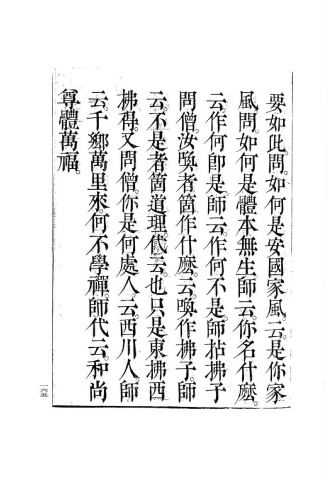 要如此問。如何是安國家風。云是你家
風。問如何是體本無生師云。你名什麼。
云作何卽是。師云作何不是。師拈拂子
問僧。汝喚者箇作什麽。云喚作拂子。師
云。不是者箇道理。代云。也只是東拂西
拂得。又問僧。你是何處人。云。西川人。師
云。千鄉萬里來。何不學禪。師代云。和尚
尊體萬福。